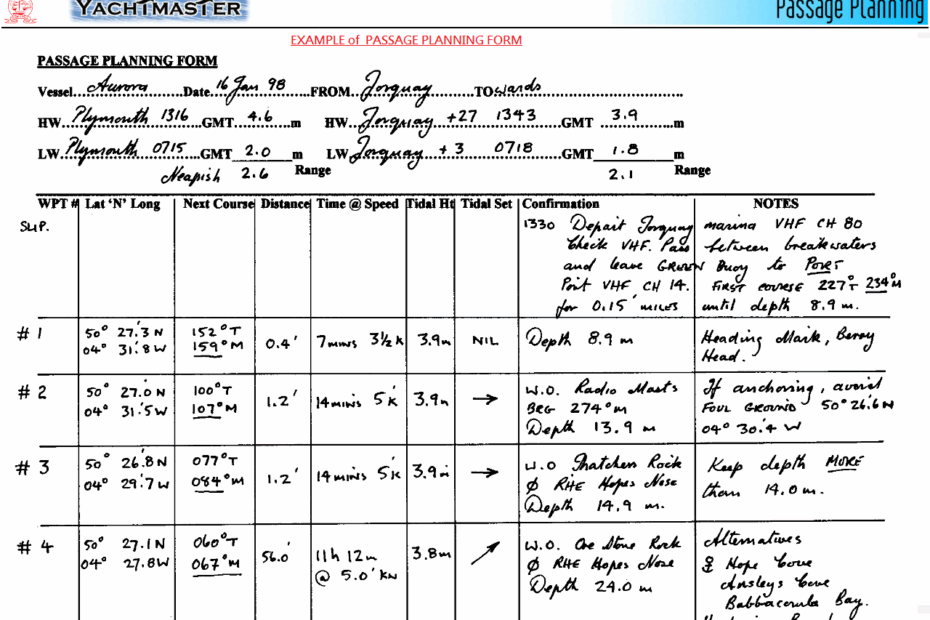 YACHTMASTER
Passage Planning
EXAMPLE of PASSAGE PLANNING FORM
PASSAGE PLANNING FORM
Vessel...Aurora...Date 16 Jan 98...FROM Torquay...TOwards...
HW...Plymouth 1316...GMT 4.6 m HW...Torquay +27 1343 GMT 3.9 m
LW Plymouth 0715 GMT 2.0 m LW Torquay +3 0718 GMT 1.8 m
Neapish 2.6 Range 2.1 Range
WPT # Lat 'N' Long Next Course Distance Time @ Speed Tidal Ht Tidal Set Confirmation NOTES
1330 Depart Torquay marina VHF CH 80
Check VHF. Pass between breakwaters
and leave GREEN Buoy to PORT
Port VHF CH 14. FIRST COURSE 227°T 234°M
for 0.15' MILES until depth 8.9 m.
# 1 50° 27.'3 N 152°T 0.4' 7 mins 3½ K 3.9m NIL Depth 8.9 m Heading Mark, Berry
04° 31.'8 W 159°M Head.
# 2 50° 27.'0 N 100°T 1.2' 14 mins 5 K 3.9m → W.O. Radio Masts If anchoring, avoid
04° 31.'5 W 107°M BRG 274°M FOUL GROUND 50° 26.'6 N
Depth 13.9 m 04° 30.'4 W
# 3 50° 26.'8 N 077°T 1.2' 14 mins 5 K 3.9m → W.O Thatcher Rock Keep depth MORE
04° 29.'7 W 084°M ϕ RHE Hopes Nose than 14.0 m.
Depth 14.9 m.
# 4 50° 27.'1 N 060°T 56.0' 11h 12m 3.8m W.O. Ore Stone Rock Alternatives
04° 27.'8 W 067°M @ 5.0' KN ϕ RHE Hopes Nose Hope Cove
Depth 24.0 m Ansleys Cove
Babbacombe Bay.